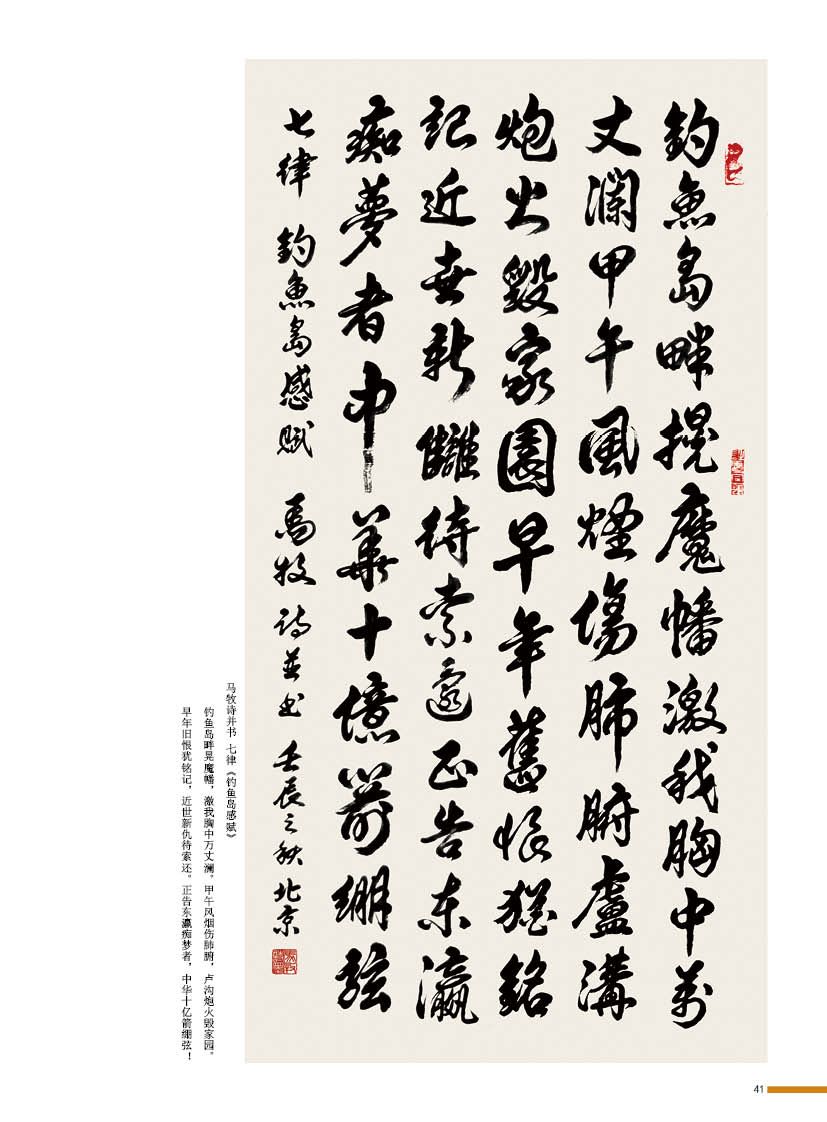 釣魚島畔摱魔幡激我胸中萬
丈瀾甲午風煙傷肺腑盧溝
炮火毀家園早年舊恨猶銘
記近世新讎待索還正告東瀛
痴夢者中華十億箭綳弦
七律 釣魚島感賦 馬牧詩並书 壬辰之秋 北京
马牧诗并书 七律《钓鱼岛感赋》
钓鱼岛畔晃魔幡，激我胸中万丈澜。甲午风烟伤肺腑，卢沟炮火毁家园。
早年旧恨犹铭记，近世新仇待索还。正告东瀛痴梦者，中华十亿箭绷弦！
41